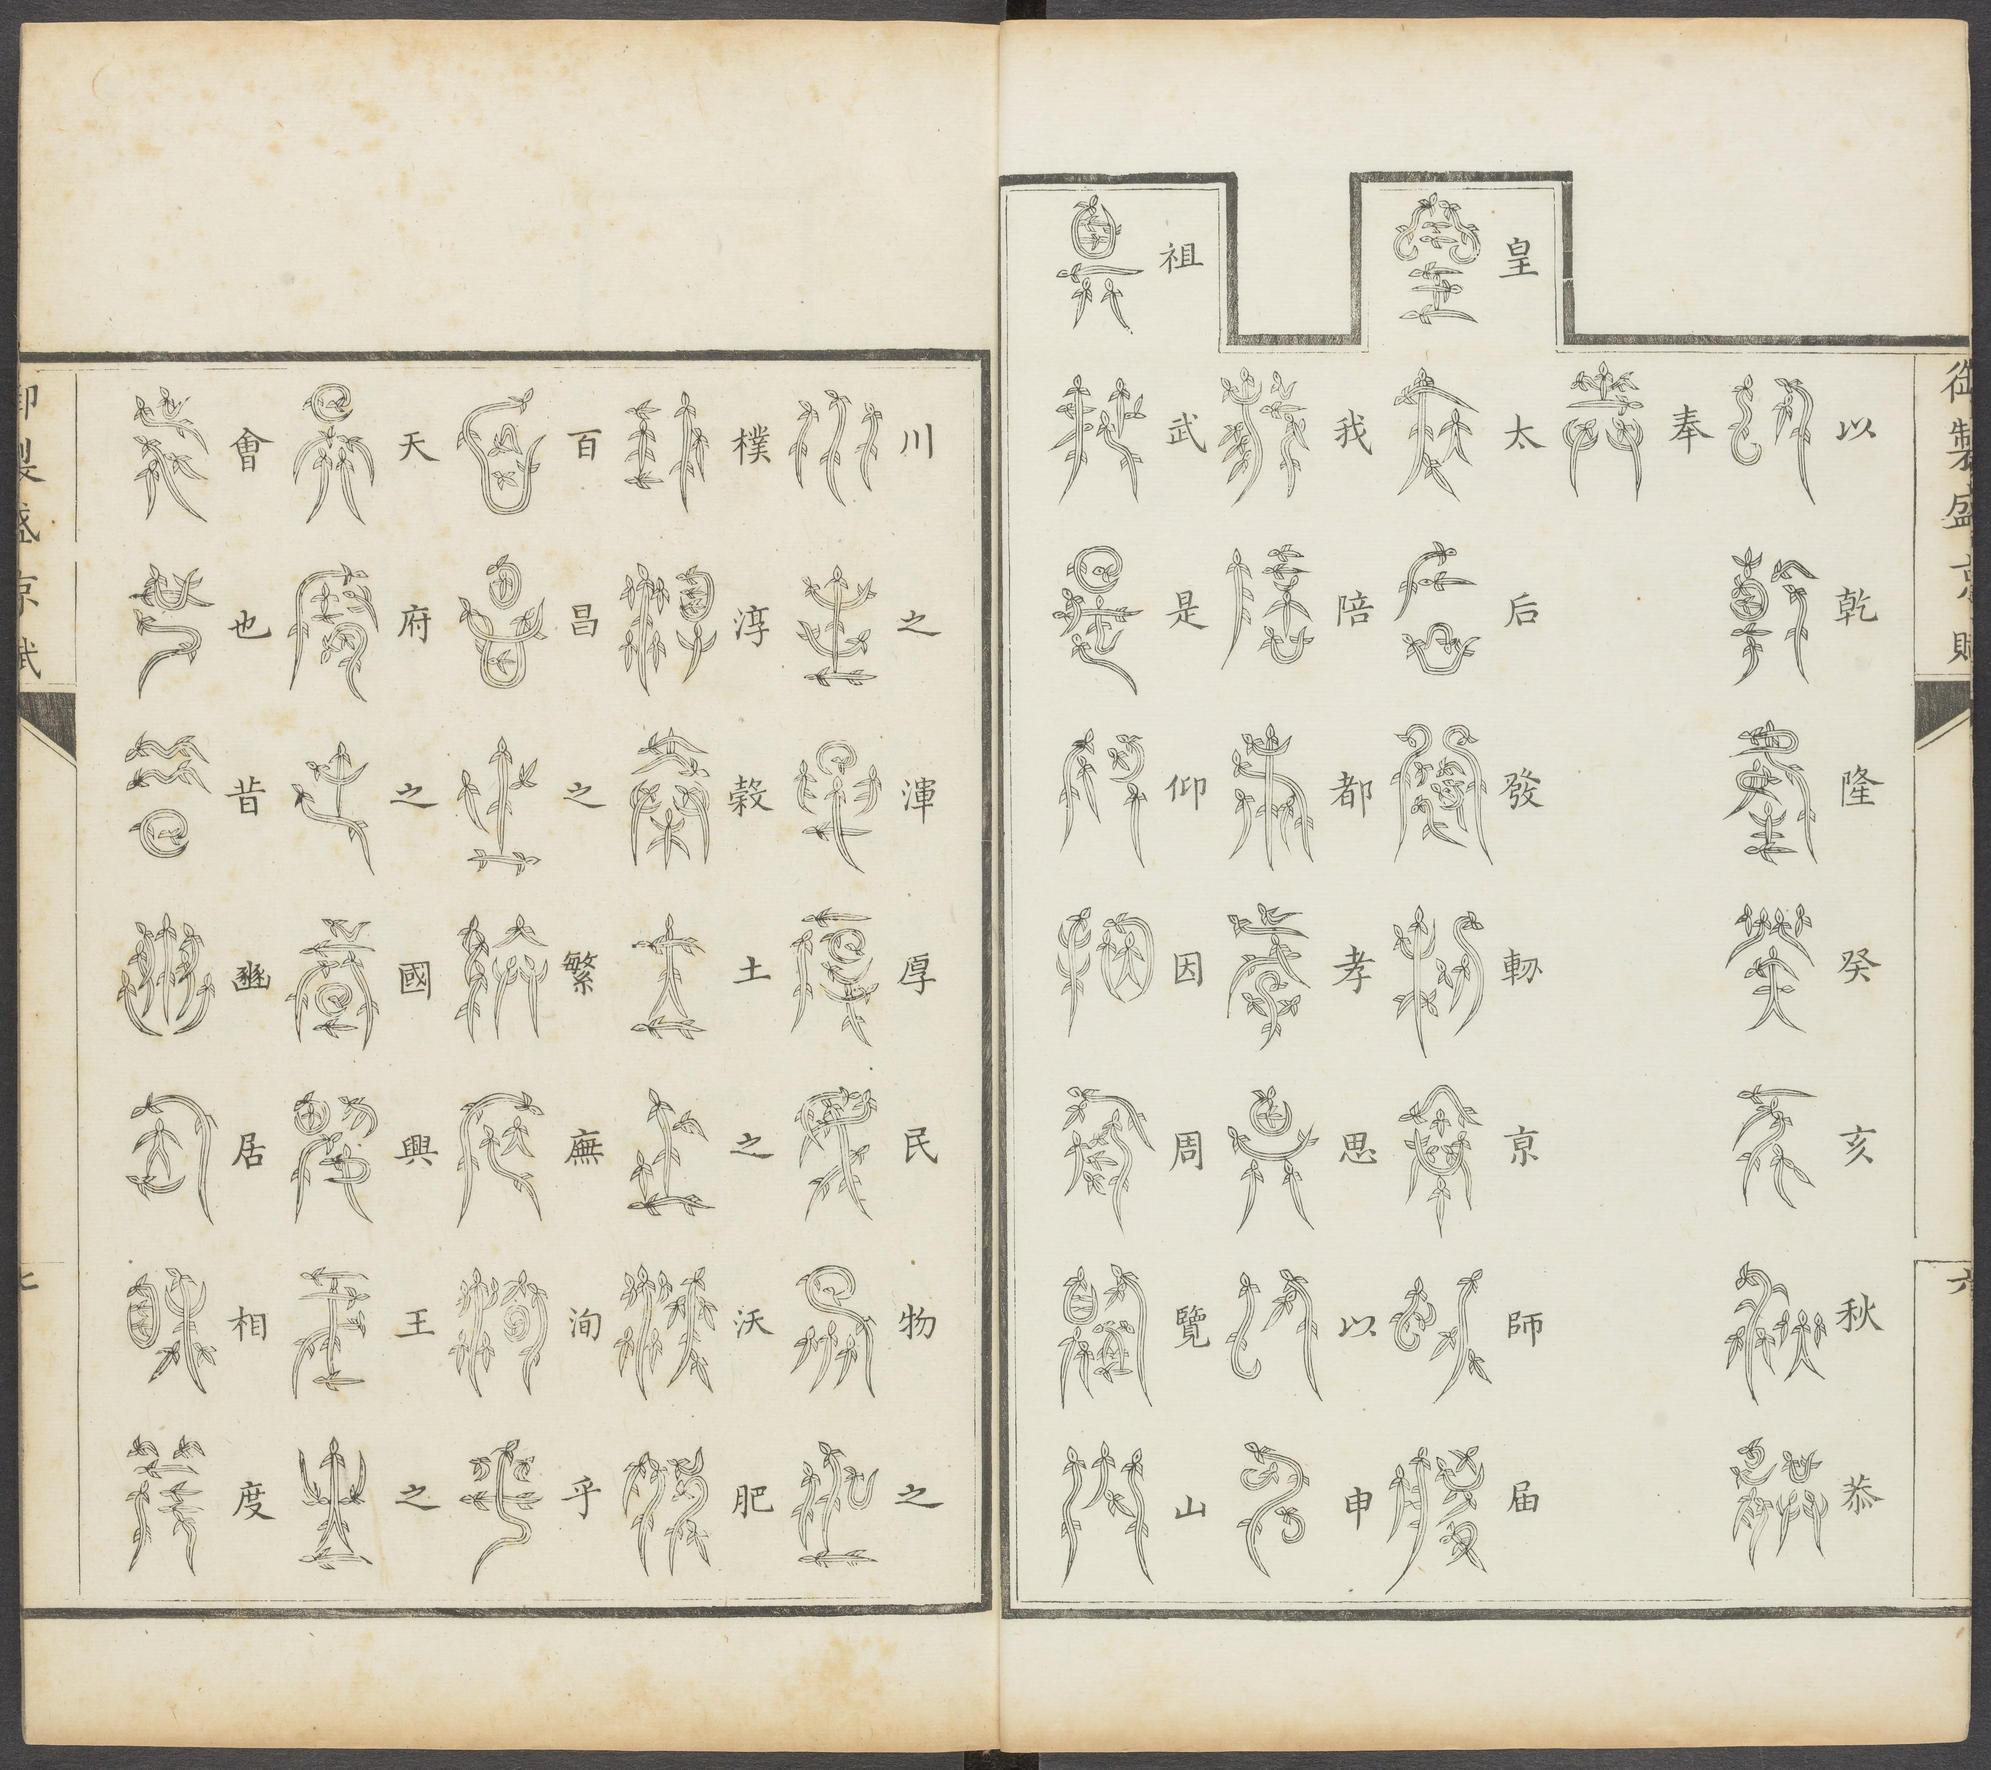 御製盛京賦
六
以乾隆癸亥秋恭
奉
皇太后發軔京師届
我陪都孝思以申
祖武是仰因周覽山
川之渾厚民物之
樸淳穀土之沃肥
百昌之繁廡洵乎
天府之國興王之
會也昔豳居相度
御製盛京賦
七